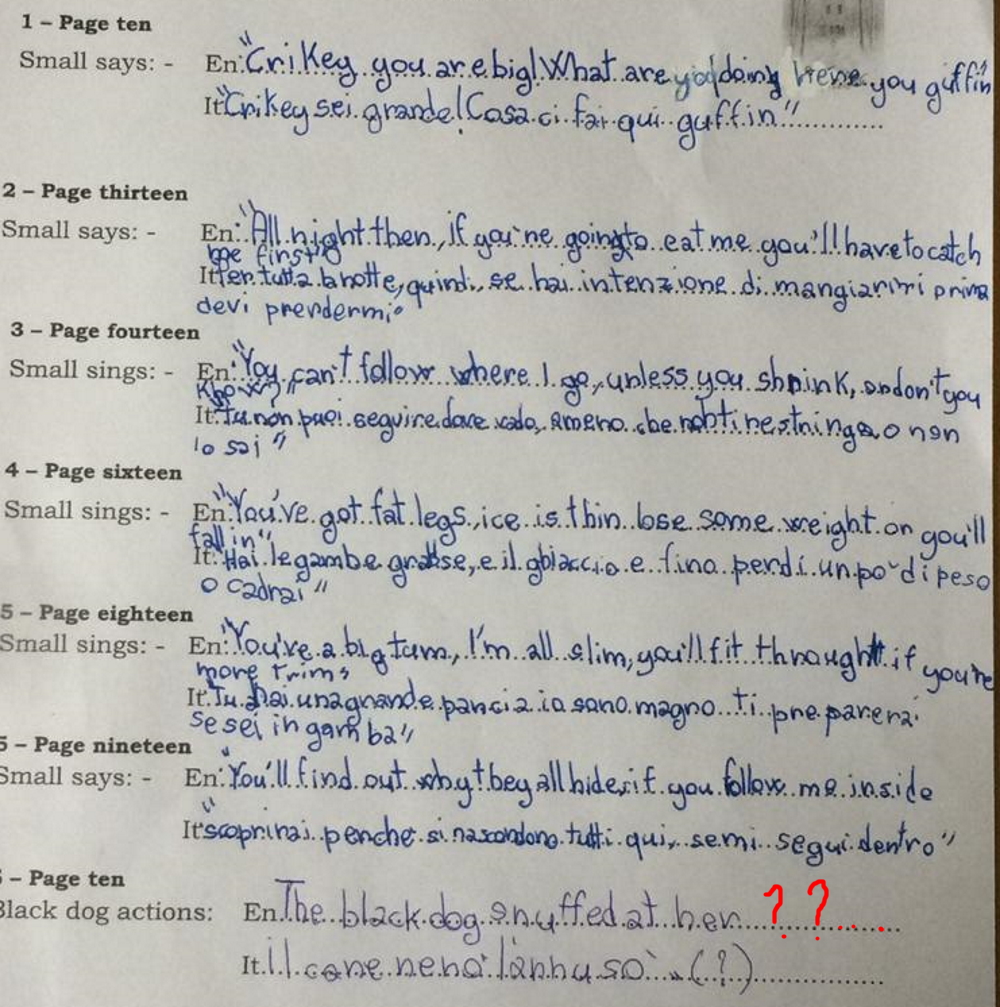 1 – Page ten
Small says: - En: "Crikey you are big! What are you doing here you guffin
It: "Crikey sei grande! Cosa ci fai qui guffin"
2 – Page thirteen
Small says: - En: "All right then, if you're going to eat me you'll have to catch
me first"
It: "Per tutta la notte, quindi, se hai intenzione di mangiarmi prima
devi prendermi"
3 – Page fourteen
Small sings: - En: "You can't follow where I go, unless you shrink, or don't you
know?"
It: "Tu non puoi seguire dove vado, a meno che non ti restringa o non
lo sai"
4 – Page sixteen
Small sings: - En: "You've got fat legs, ice is thin lose some weight or you'll
fall in"
It: "Hai le gambe grasse, e il ghiaccio e fino perdi un po' di peso
o cadrai"
5 – Page eighteen
Small sings: - En: "You've a big tum, I'm all slim, you'll fit through if you're
more trim"
It: "Tu hai una grande pancia io sono magro ti preparerai
se sei in gamba"
5 – Page nineteen
Small says: - En: "You'll find out why they all hide, if you follow me inside
It: "scoprirai perche si nascondono tutti qui, se mi segui dentro"
– Page ten
Black dog actions: En: The black dog snuffed at her ? ?
It: Il cane nero l'annusò (?)